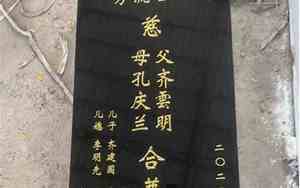 二〇二
慈
父齐雲明
母孔庆兰
合葬
儿子 齐建国
儿媳 李明先